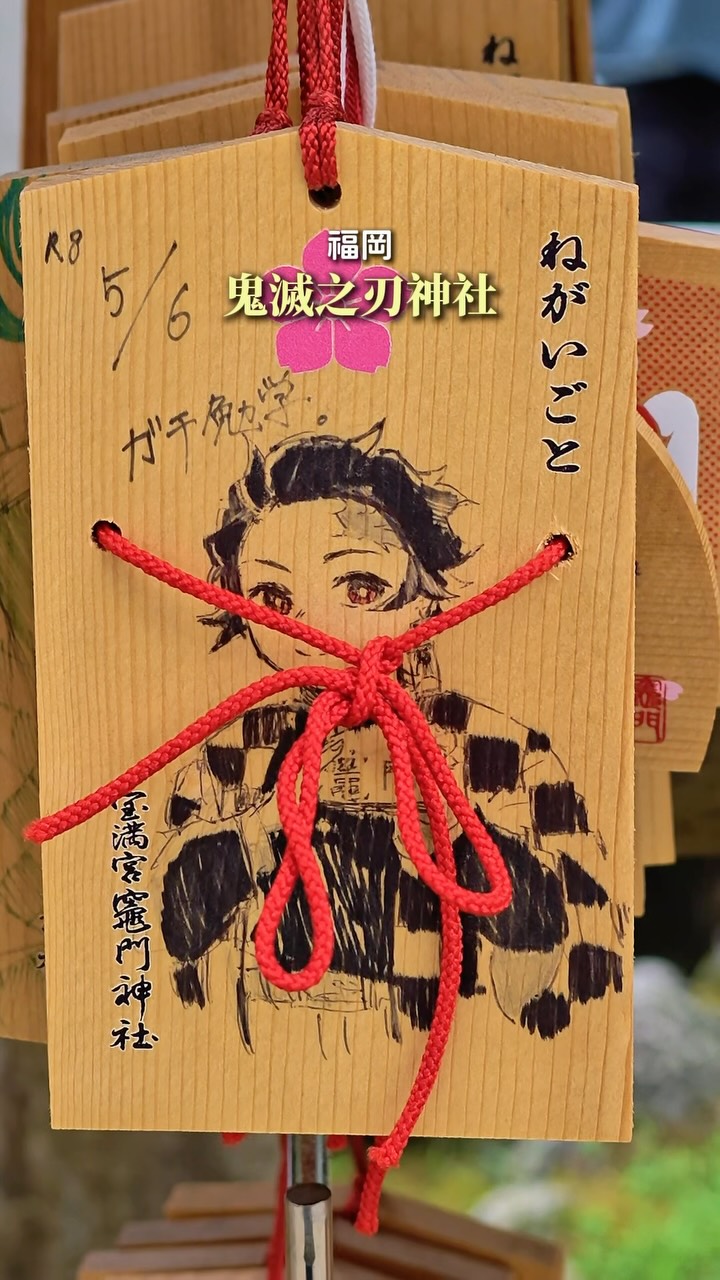 ね
福岡
鬼滅之刃神社
ねがいごと
R8
5/6
ガチ勉学。
宝満宮竈門神社